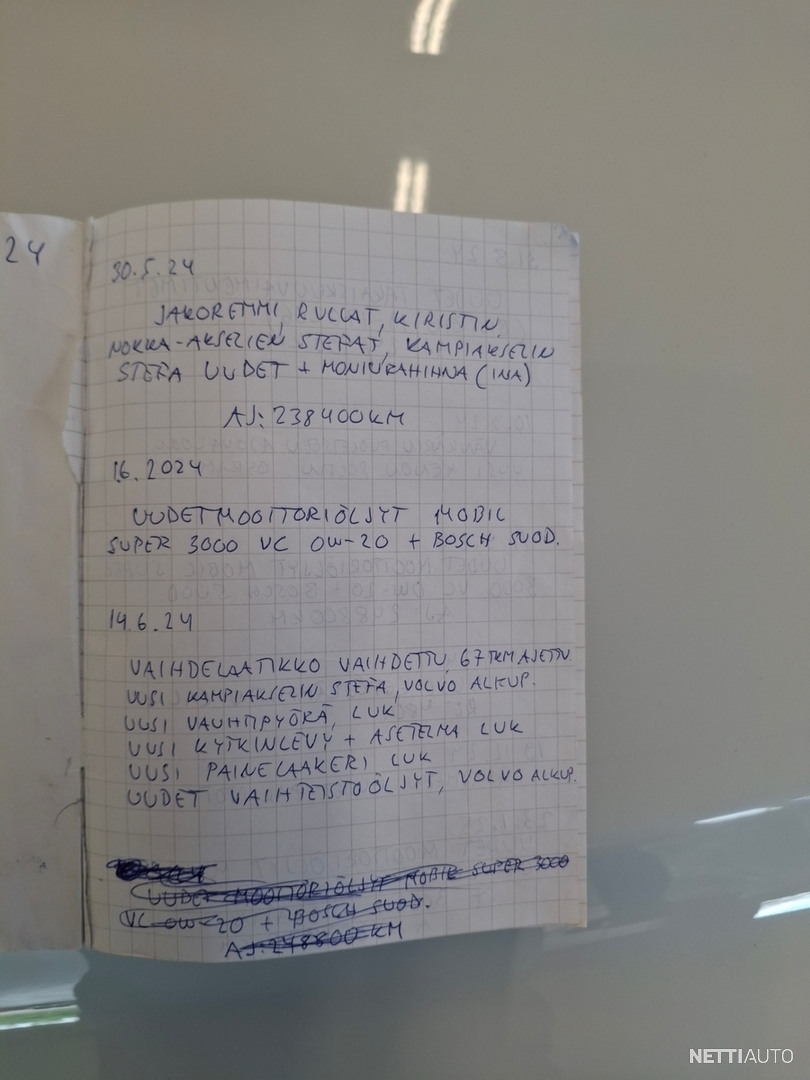 24
30.5.24
JAKOREMMI, RULLAT, KIRISTIN,
NOKKA-AKSELIEN STEFAT, KAMPIAKSELIN
STEFA UUDET + MONIURAHIHNA (INA)
AJ: 238400KM
1.6.2024
UUDET MOOTTORIÖLJYT MOBIL
SUPER 3000 VC 0W-20 + BOSCH SUOD.
14.6.24
VAIHDELAATIKKO VAIHDETTU, 67TKM AJETTU
UUSI KAMPIAKSELIN STEFA, VOLVO ALKUP.
UUSI VAUHTIPYÖRÄ, LUK
UUSI KYTKINLEVY + ASETELMA LUK
UUSI PAINELAAKERI LUK
UUDET VAIHTEISTOÖLJYT, VOLVO ALKUP.
UUDET MOOTTORIÖLJYT MOBIL SUPER 3000
VC 0W-20 + BOSCH SUOD.
AJ: 248800KM
NETTIAUTO